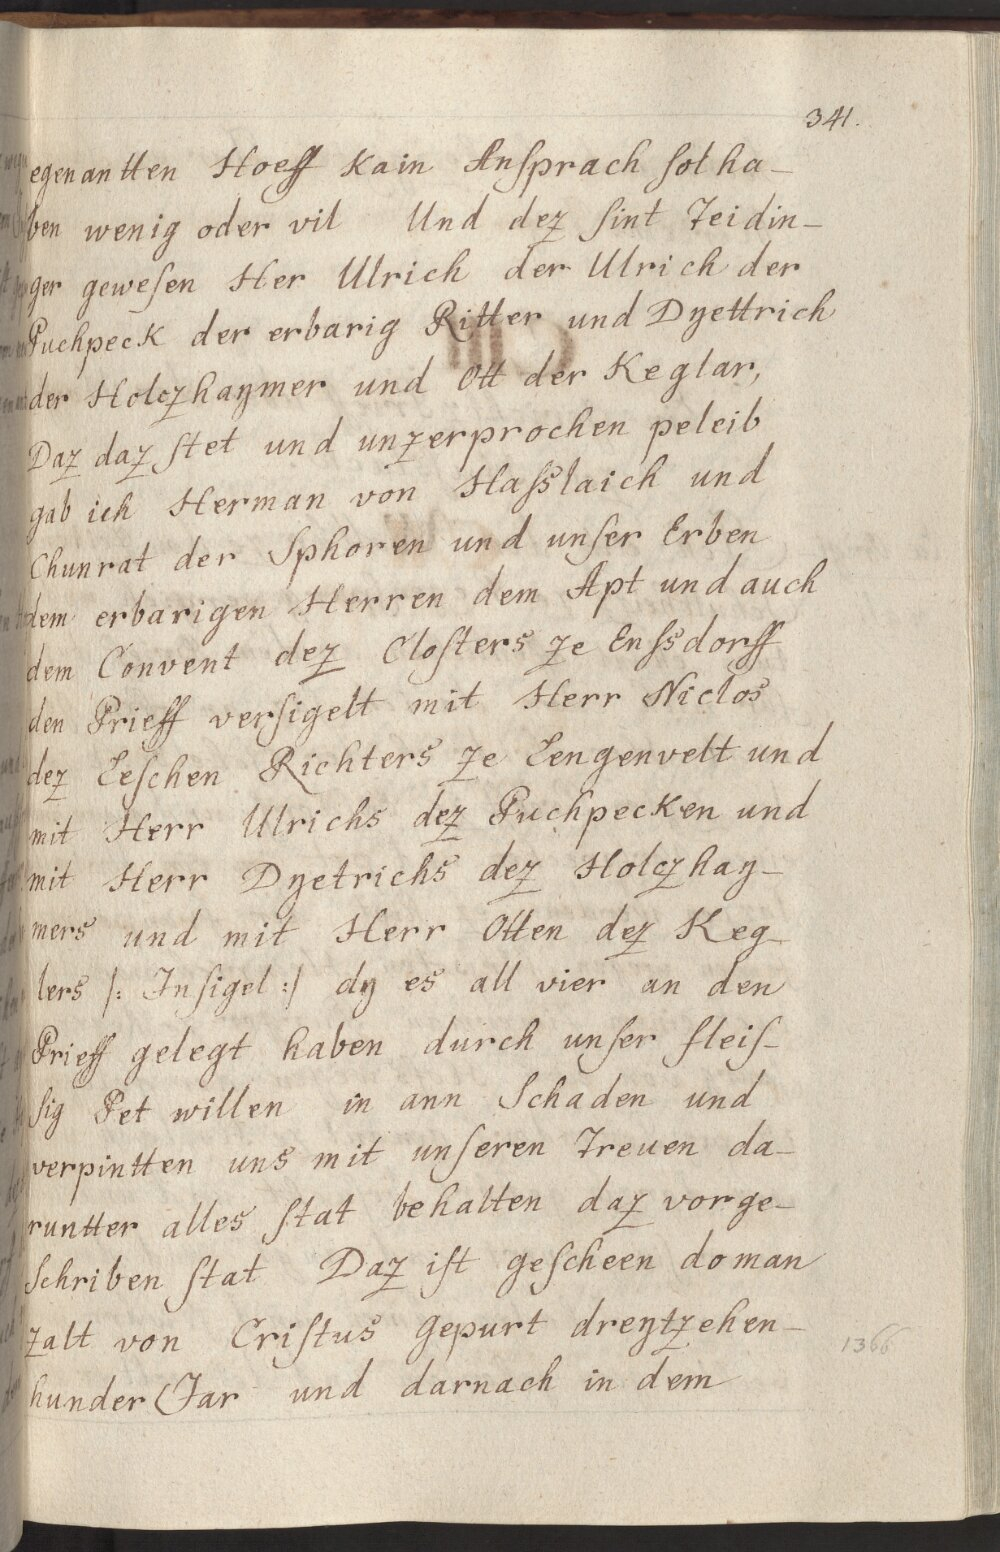 341.
egenantten Hoeff kain Ansprach sol ha-
ben wenig oder vil Und dez sint Teidin-
ger gewesen Her Ulrich der Ulrich der
Puchpeck der erbarig Ritter und Dyettrich
der Holczhaymer und Ott der Keglar,
Daz daz stet und unzerprochen peleib
gab ich Herman von Hasslaich und
Chunrat der Sphoren und unser Erben
dem erbarigen Herren dem Apt und auch
dem Convent dez Closters ze Enssdorff
den Prieff versigelt mit Herr Niclos
dez Leschen Richters ze Lengenvelt und
mit Herr Ulrichs dez Puchpecken und
mit Herr Dyetrichs dez Holczhay-
mers und mit Herr Otten dez Keg-
lers /: Insigel :/ dy es all vier an den
Prieff gelegt haben durch unser fleis-
sig Pet willen in ann Schaden und
verpintten uns mit unseren Treuen da-
runtter alles stat behalten daz vorge-
schriben stat Daz ist gescheen do man
zalt von Cristus gepurt dreytzehen-
hunder Jar und darnach in dem
1366